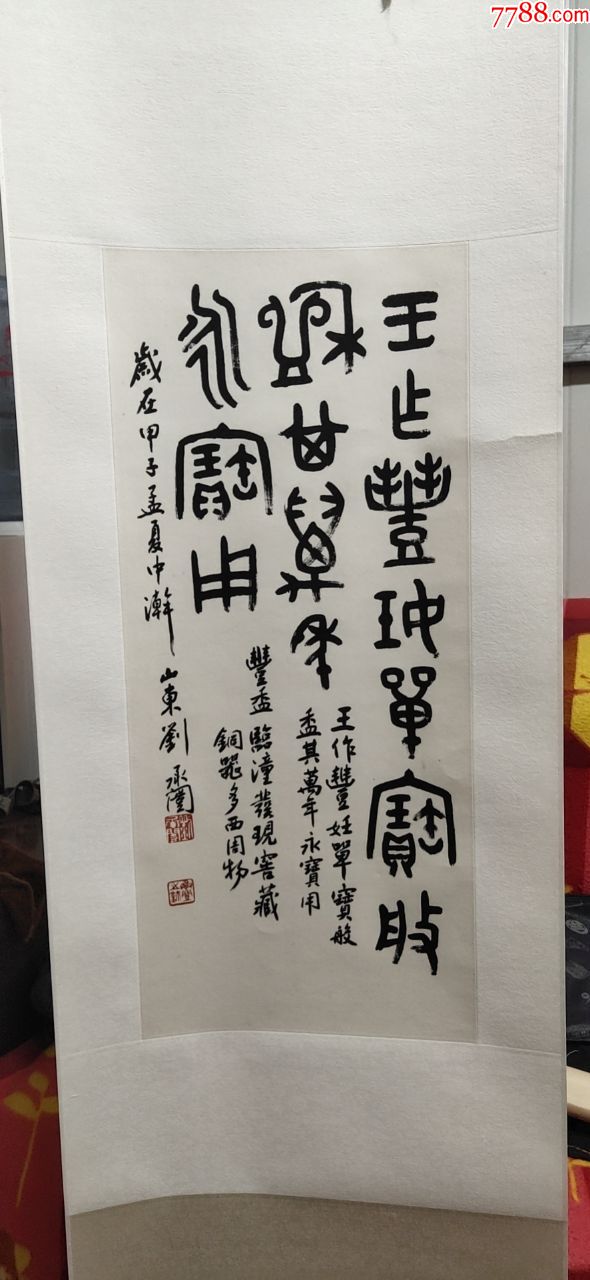 7788.com
王乍豐妊單寶般
盉其萬年
永寶用
王作豐妊單寶般
盉其萬年永寶用
豐盉臨潼發現窖藏
銅器多西周物
歲在甲子孟夏中澣山東劉承闓